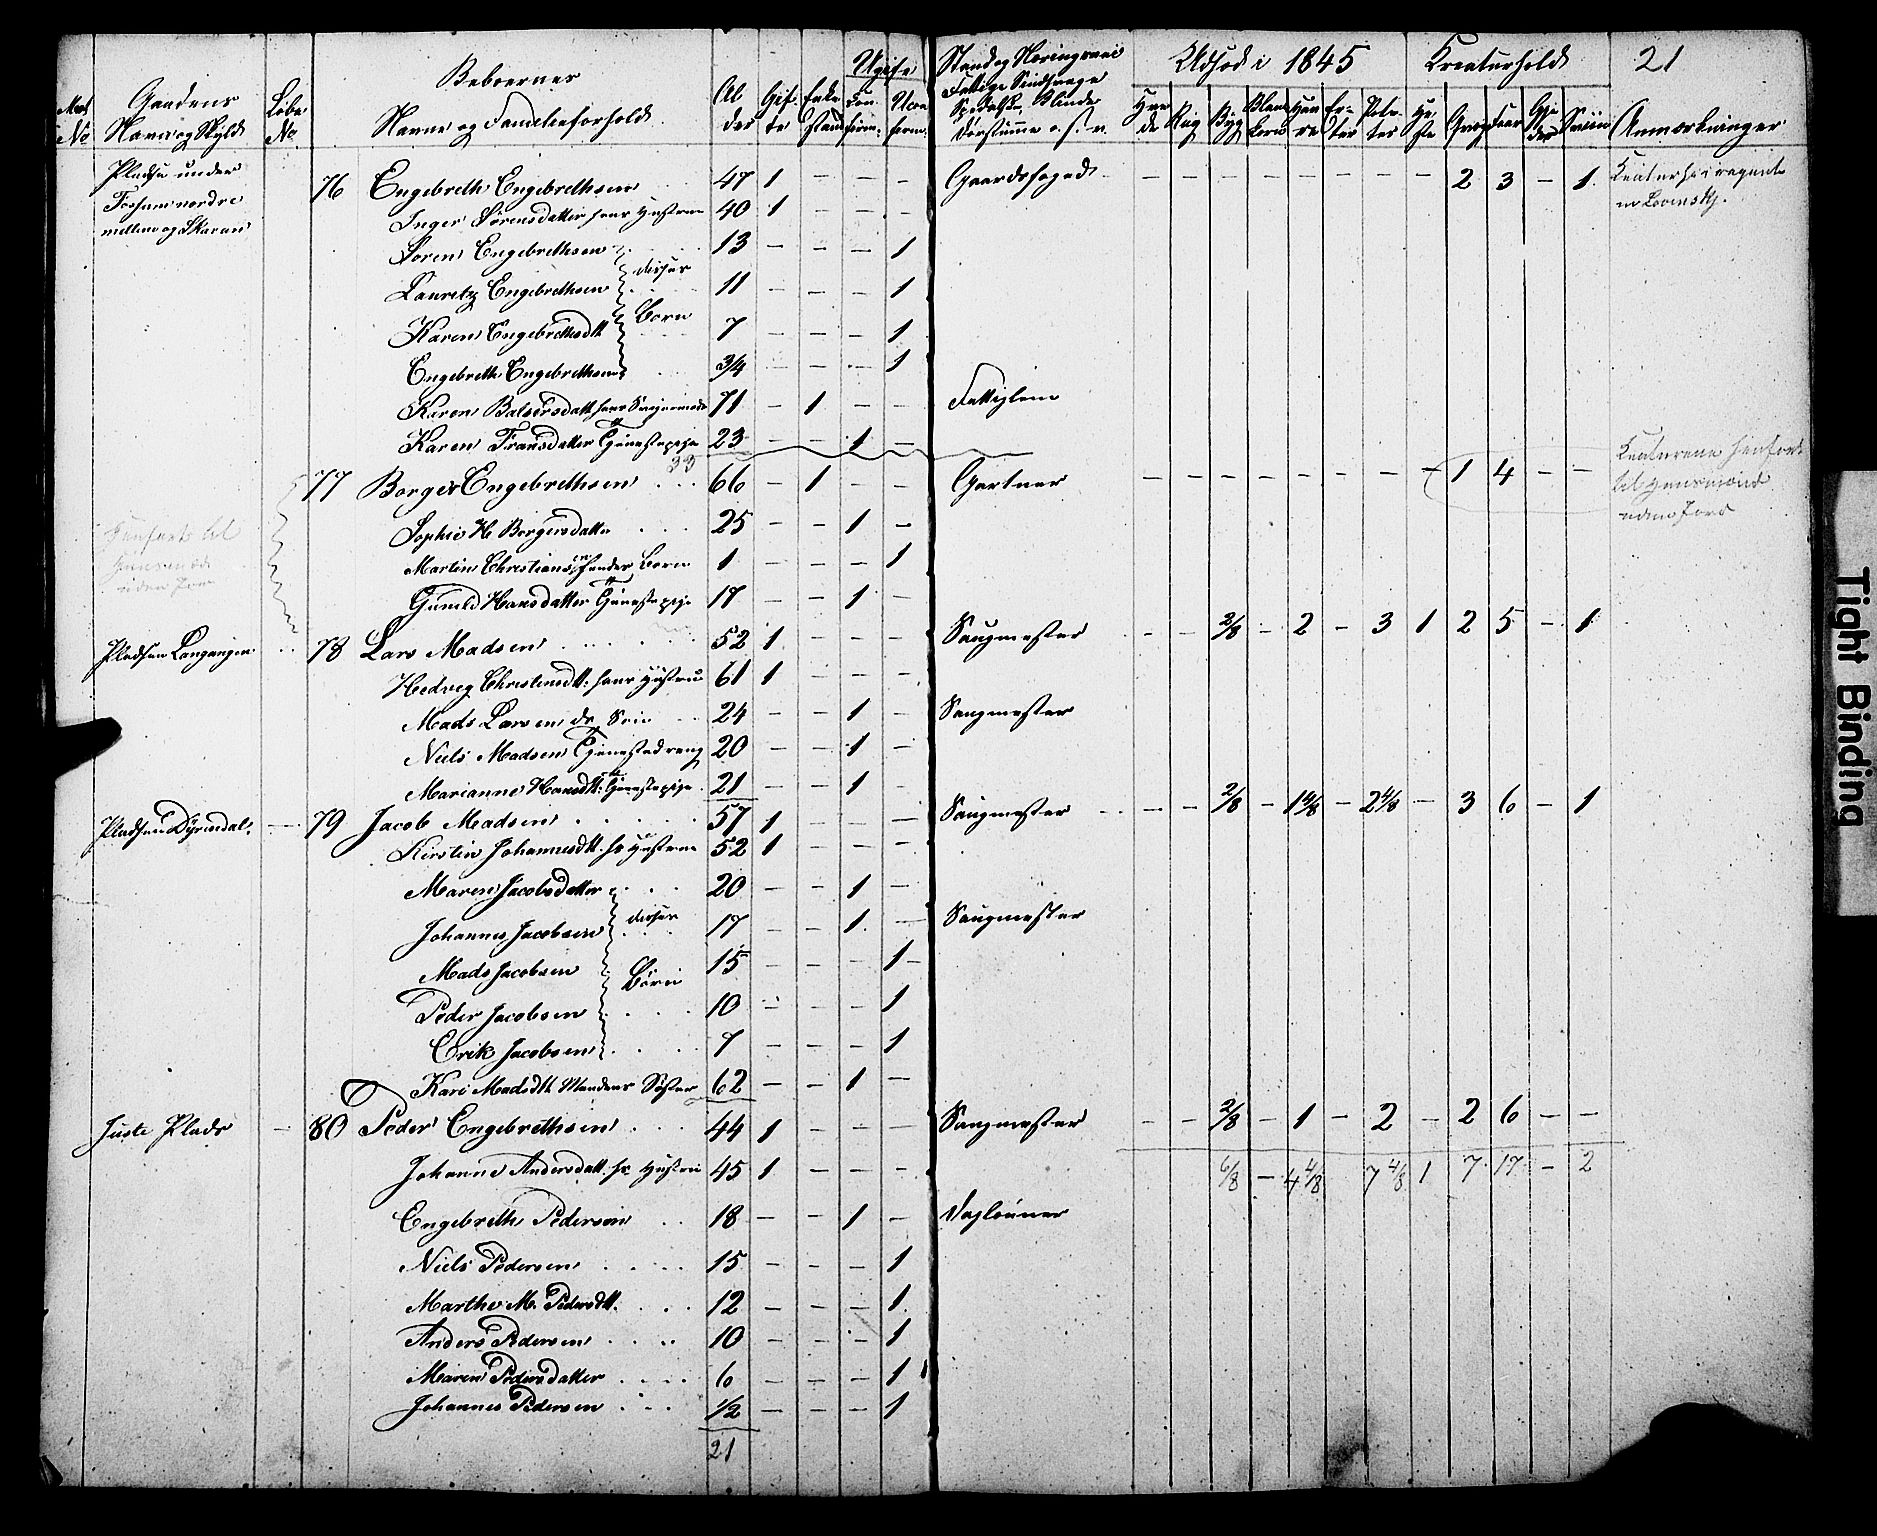 Mat No | Gaardens Navn og Skyld | Løbe No | Beboernes Navne og Familieforhold | Alder | Gifte | Enkestand | Ugifte Confirm: | Uconfirm: | Stand og Næringsvei Fattige Sindssvage Spedalske Blinde Døvstumme o. s. v. | Udsæd i 1845 | Hvede | Rug | Byg | Blandkorn | Havre | Erter | Poteter | Kreaturhold | Heste | Qvæg | Faar | Gjeder | Sviin | 21 Anmærkninger
Pladse under 76 Engebreth Engebrethsen 47 1 - - - Gaardsfoged - - - - - - - - 2 3 - 1
Fossum nordre Inger Sørensdatter hans Hustrue 40 1 - - -
mellem og Skaren
Søren Engebrethsen 13 - - - 1
Lauritz Engebrethsen disses 11 - - - 1
Karen Engebrethsdtt Børn 7 - - - 1
Engebreth Engebrethsen 3/4 - - - 1
Karen Balsersdatt hans Svigermoder 71 - 1 - - Fattiglem
Karen Fransdatter Tjenestepige 23 - - 1 -
33
77 Borger Engebrethsen 66 - 1 - - Gartner - - - - - - - - 1 4 - - Kreaturene henført til
uden Jord
Sophie H Borgersdatter 25 - - 1 -
Henført til
uden Jord
Martin Christiansen 1 - - - 1
Gunild Hansdatter Tjenestepige 17 - - 1 -
Pladsen Langangen 78 Lars Madsen 52 1 - - - Saugmester - - 2/8 - 2 - 3 1 2 5 - 1
Hedvig Christensdtt: hans Hustrue 61 1 - - -
Mads Larsen ds Søn 24 - - 1 - Saugmester
Niels Madsen Tjenestedreng 20 - - 1 -
Marianne Hansdtt: Tjenestepige 21 - - 1
Pladsen Dyrendal. 79 Jacob Madsen 57 1 - - - Saugmester - - 2/8 - 1 4/8 - 2 4/8 - 3 6 - 1
Kirstin Johannesdtt. hs Hustrue 52 1 - - -
Maren Jacobsdatter 20 - - 1 -
Johannes Jacobsen disses 17 - - 1 - Saugmester
Mads Jacobsen Børn 15 - - - 1
Peder Jacobsen 10 - - - 1
Erik Jacobsen 7 - - - 1
Kari Madsdtt Mandens Søster 62 - - 1 -
Plads 80 Peder Engebrethsen 44 1 - - - Saugmester - - 2/8 - 1 - 2 - 2 6 - -
Johanne Andersdatt. hs Hustrue 45 1 - - - 6/8 - 4 4/8 7 4/8 1 7 17 - 2
Engebreth Pedersen 18 - - 1 - Daglønner
Niels Pedersen 15 - - - 1
Marthe M. Pedersdtt. 12 - - - 1
Anders Pedersen 10 - - - 1
Maren Pedersdatter 6 - - - 1
Johannes Pedersen 1/2 - - - 1
21
Tight Binding